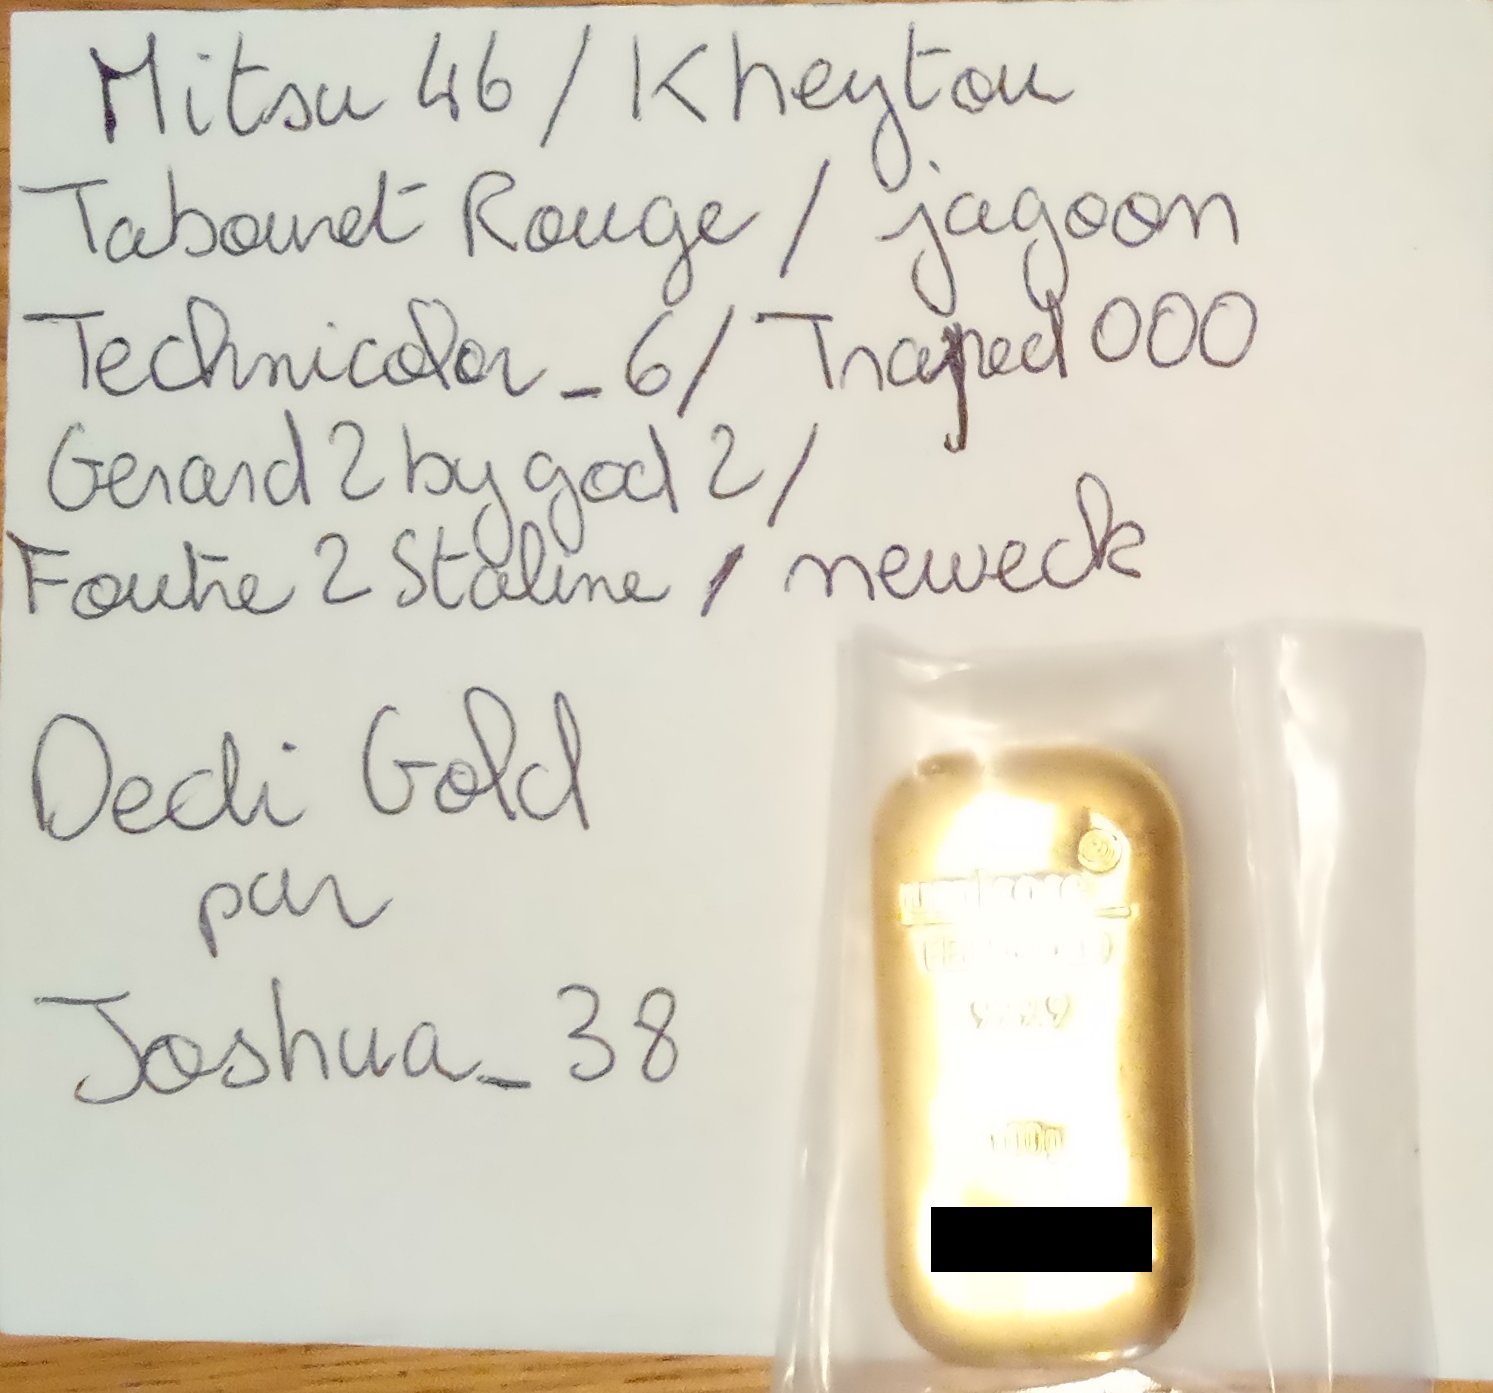 Mitsu 46 / Kheytou
Tabouret Rouge / jagoon
Technicolor_6 / Traped 000
Gerard 2 by god 2 /
Foutre 2 Staline / neweck
Dedi Gold
par
Joshua_38
umicore
100g